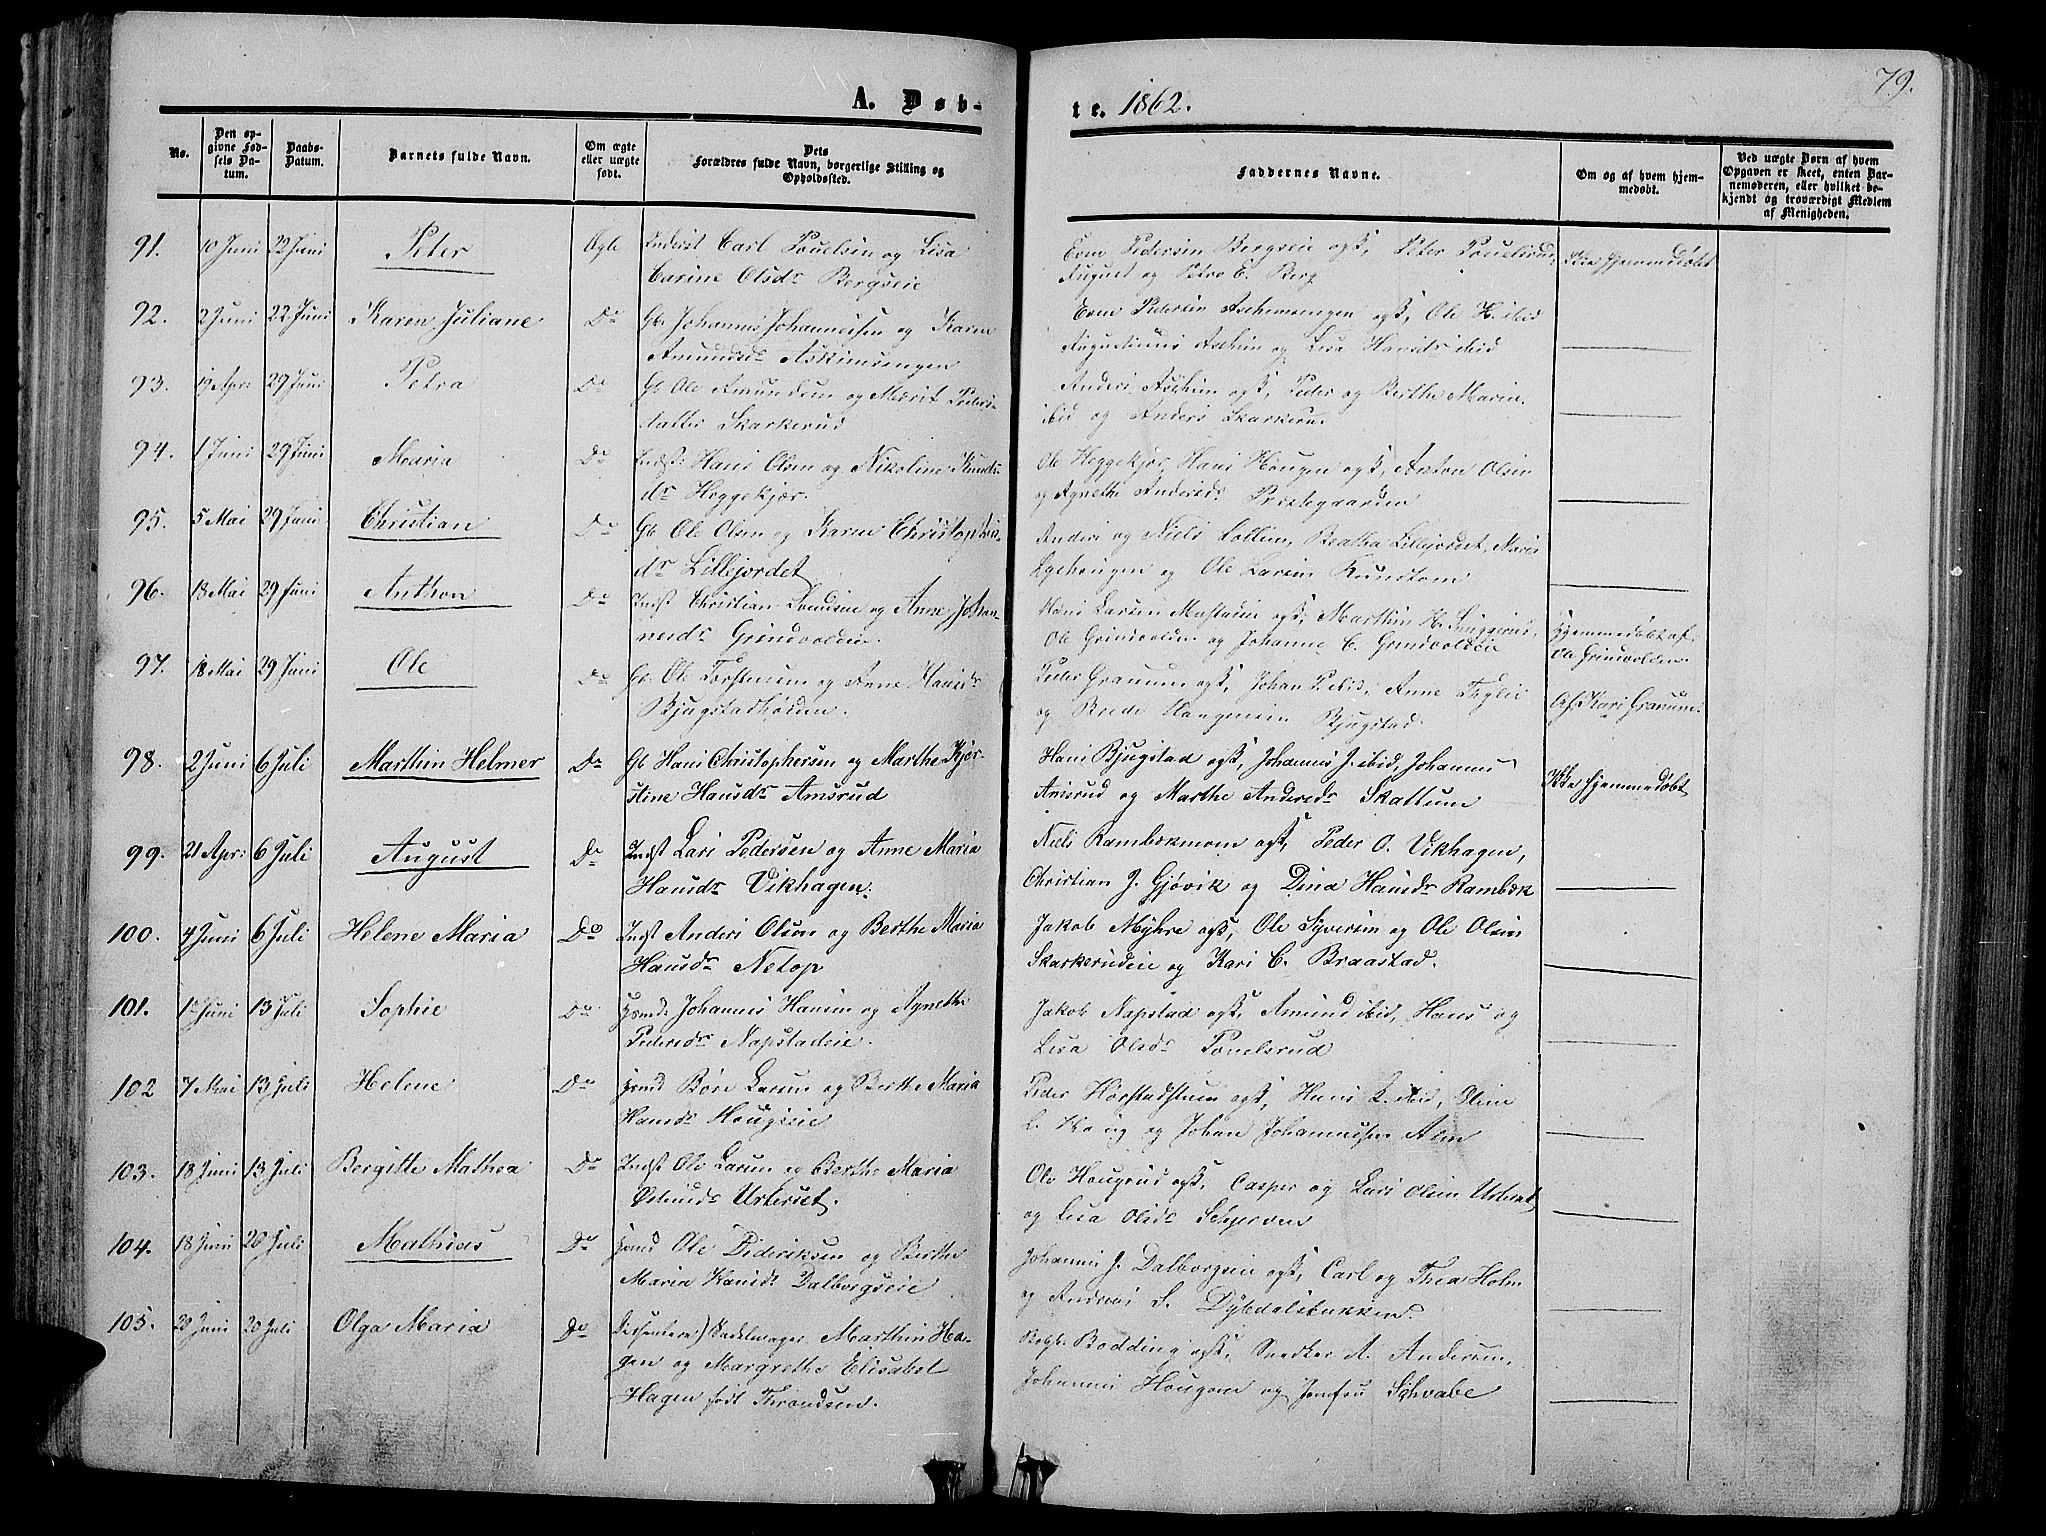 79.
A. Døb-
te. 1862.
No.
Den op-
givne Fød-
sels Da-
tum.
Daabs-
Datum.
Barnets fulde Navn.
Om ægte
eller uægte
født.
Dets
Forældres fulde Navn, borgerlige Stilling og
Opholdssted.
Faddernes Navne.
Om og af hvem hjem-
medøbt.
Ved uægte Børn af hvem
Opgaven er skeet, enten Bar-
nemoderen, eller hvilket be-
kjendt og troværdigt Medlem
af Menigheden.
91. 10 Juni 22 Juni Peter Ægte Inderst Carl Pouelsen og Lisa
Carine Olsdr Bergseie
Even Pedersen Bergseie ogs, Peter Pouelsrud,
August og Petro E. Berg
Ikke hjemmedøbt
92. 2 Juni 22 Juni Karen Juliane Do Gb. Johannes Johannessen og Karen
Amundsdr Askimsengen
Even Pedersen Aschemsengen ogs, Ole H. ibid
Augustinus Aschim og Lisa Hansdr ibid
93. 19 Apr: 29 Juni Petra Do Gb. Ole Amundsen og Marit Peders-
datter Skarkerud
Anders Aschim ogs, Peder og Berthe Marie
ibid og Anders Skarkerud
94. 1 Juni 29 Juni Maria Do Indst: Hans Olsen og Nikoline Knuds-
dr Heggekjær.
Ole Heggekjær, Hans Hougen ogs, Anton Olsen
og Agnethe Andersdr Prestegaarden
95. 5 Mai 29 Juni Christian Do Gb Ole Olsen og Karen Christophers-
dr Lillejordet
Anders og Niels Lollum, Beatha Lillejordet, Maris
og Ole Larsen
96. 13 Mai 29 Juni Anthon Do Indst Christian og Anne Johan-
nesdr Grindvolden.
Hans Larsen ogs, Marthin H.
Ole Grindvolden og Johanne C. Grindvolden
Hjemmedøbt af
Ole Grindvolden.
97. 18 Mai 29 Juni Ole Do Gb. Ole Torstensen og Anne Hansdr
Bjugstadhølden.
Peder Granum ogs, Johan P. ibid, Anne
og Brede Bjugstad.
Af Kari Granum.
98. 2 Juni 6 Juli Marthin Helmer Do Gb Hans Christophersen og Marthe Kjer-
stine Hansdr Amsrud
Hans Bjugstad ogs, Johannes J. ibid, Johannes
Amsrud og Marthe Andersdr Skattum
Ikke hjemmedøbt
99. 21 Apr: 6 Juli August Do Indst Lars Pedersen og Anne Maria
Hansdr Vikhagen.
Niels Rambekmoen ogs, Peder O. Vikhagen,
Christian J. Gjøvik og Dina Hansdr Rambek
100. 4 Juni 6 Juli Helene Maria Do Indst Anders Olsen og Berthe Maria
Hansdr Netop
Jakob Myhre ogs, Ole Syversen og Ole Olsen
Skarkerudeie og Kari C. Braastad.
101. 1 Juni 13 Juli Sophie Do Hsmd. Johannes Hansen og Agnethe
Pedersdr Napstadeie.
Jakob Napstad ogs, Amund ibid, Hans og
Lisa Olsdr Pouelsrud
102 7 Mai 13 Juli Helene Do Hsmd Børe Larsen og Berthe Maria
Hansdr Hougseie
Peder ogs, Hans L. ibid,
L. Houg og Johan Johannessen Alm
103. 18 Juni 13 Juli Bergitte Mathea Do Indst Ole Larsen og Berthe Maria
Urterset.
Ole ogs, Casper og Lars Olsen
og Lisa Olsdr
104. 18 Juni 20 Juli Mathias Do Hsmd Ole Dideriksen og Berthe
Maria Hansdr Dalborgseie
Johannes J. Dalborgseie ogs, Carl og Thea Holm
og Andreas S. Dybdalsbakken
105. 20 Juni 20 Juli Olga Maria Do (Dissentere) Marthin Ha-
gen og Margrethe Elisabet
Hagen født Throndsen.
Bodding ogs, Snedker A. Andersen,
Johannes Hougom og Jomfru Schvabe